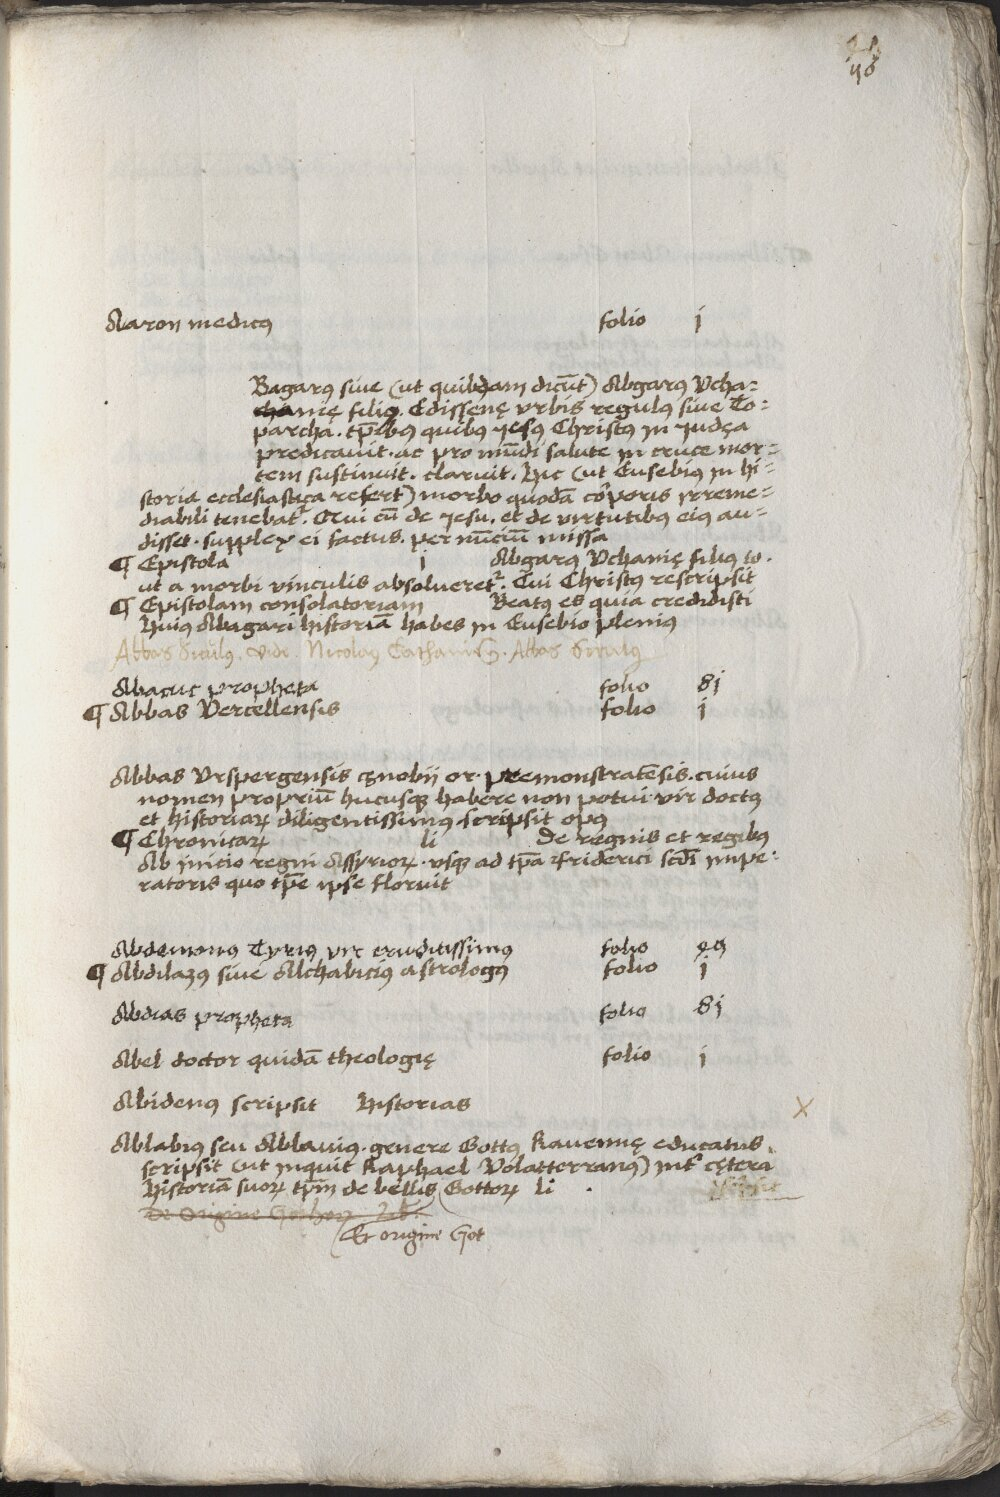 Aaron medicꝰ folio j
Bagarꝰ siue (ut quibꝰdam dicūt) Abgarꝰ Vcha=
nię filiꝰ. Edissenę vrbis regulꝰ siue To=
parcha. tp̄ibꝰ quibꝰ Jesꝰ Christꝰ in Judęa
predicauit. ac pro mūdi salute in cruce mor=
tem sustinuit. claruit. Hic (ut Eusebiꝰ in hi=
storia ecclesiastica refert) morbo quodā corporis irreme=
diabili tenebatr. Qui cū de Jesu. et de virtutibꝰ eiꝰ au=
disset. supplex ei factus. per nūciū missa
¶ Epistola i Abgarꝰ Vchanię filiꝰ to.
ut a morbi vinculis absolueretr. Cui Christꝰ rescripsit
¶ Epistolam consolatoriam Beatꝰ es quia credidisti
Huiꝰ Abagari historiā habes in Eusebio pleniꝰ
Abbas Siculꝰ. vide. Nicolaꝰ Abbas Siculꝰ
Abacuc propheta folio 8j
¶ Abbas Vercellensis folio j
Abbas Vrspergensis cęnobii or. premonstratēsis. cuius
nomen propriū hucusqꝫ habere non potui. vir doctꝰ
et historiaꝝ diligentissimꝰ. scripsit opꝰ
¶ Chronicaꝝ li De regnis et regibꝰ
Ab inicio regni Assyrioꝝ. vsqꝫ ad tp̄a Friderici scd̄i impe=
ratoris quo tp̄e ipse floruit
Abdemonꝰ Tyriꝰ vir eruditissimꝰ folio
¶ Abdilazꝰ siue Alchabiciꝰ astrologꝰ folio j
Abdias propheta folio 8j
Abel doctor quidā theologię folio j
Abidenꝰ scripsit Historias
Ablabiꝰ seu Ablauiꝰ. genere Gottꝰ Rauennę educatus.
scripsit (ut inquit Raphael Volatterranꝰ) int' cętera
Historiā suoꝝ tp̄m de bellis Gottoꝝ li .
De Origine Gothoꝝ Lib.
Et origine Got